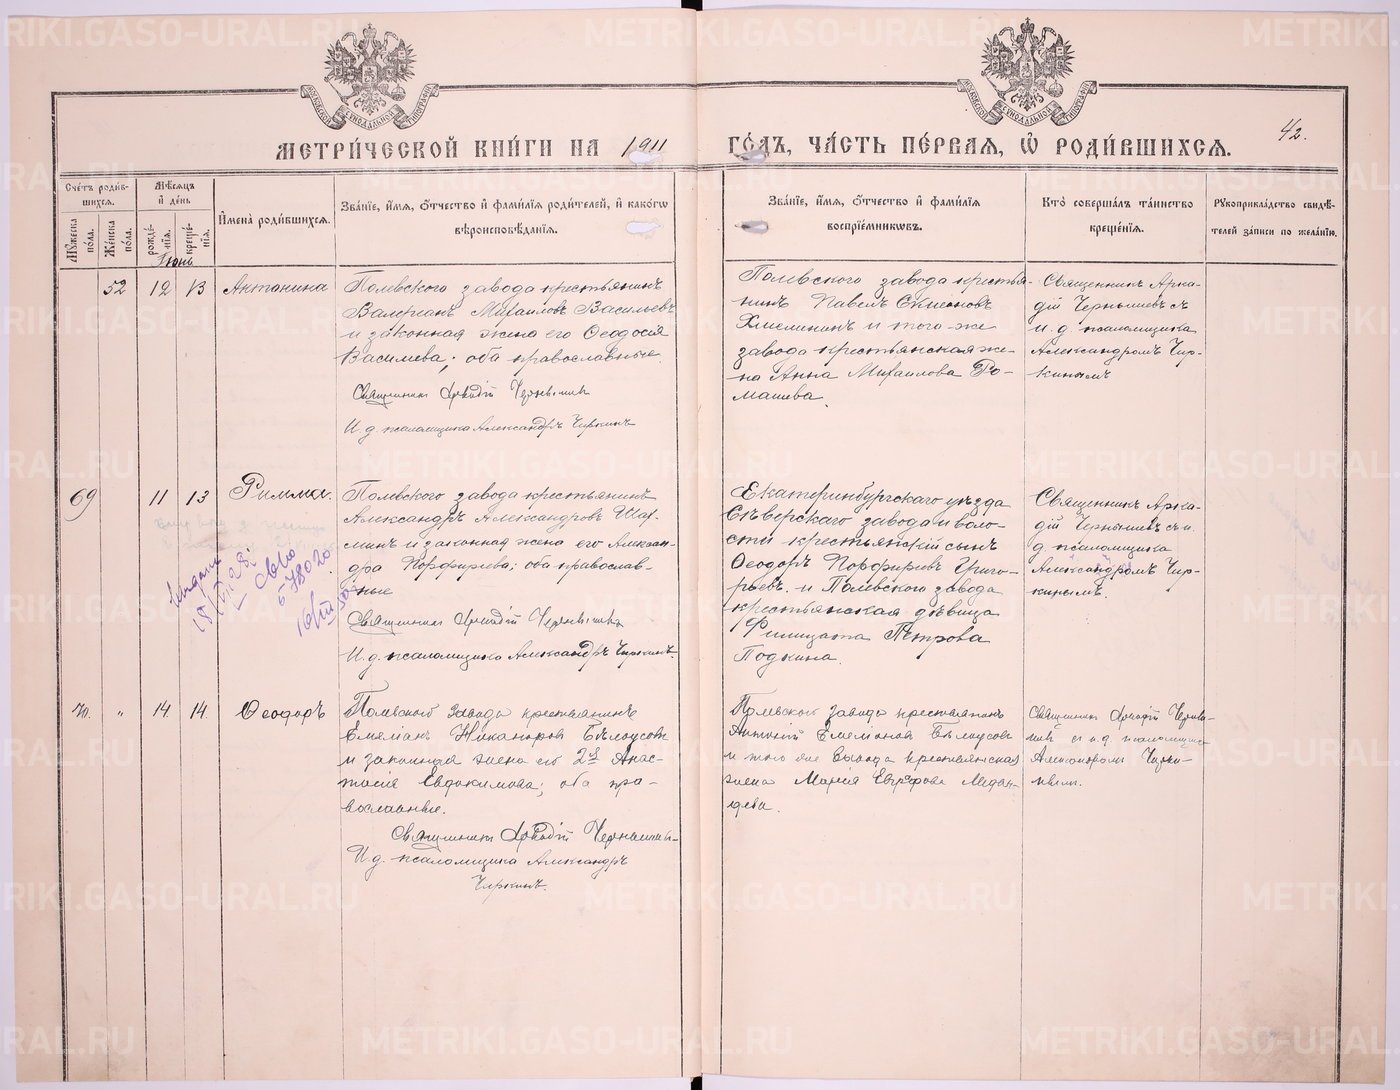 МЕТРИ́ЧЕСКОЙ КНИ́ГИ НА 1911 ГО́ДЪ, ЧА́СТЬ ПЕ́РВАЯ, Ѽ РОДИ́ВШИХСЯ.
42.
Сче́тъ роди́вшихся.
Мѹ́жеска по́ла.
Же́нска по́ла.
Мѣ́сяцъ и҆ де́нь
рожде́нія.
креще́нія.
И҆мена̀ роди́вшихся.
Зва́ніе, и҆́мя, ѻ҆́тчество и҆ фами́лія роди́телей, и҆ како́гѡ
вѣроисповѣ́данія.
Зва́ніе, и҆́мя, ѻ҆́тчество и҆ фами́лія
воспріе́мникѡвъ.
Кто̀ соверша́лъ та́инство
креще́нія.
Рѹкоприкла́дство свидѣ́-
телей за́писи по жела́нію.
Іюнь
52
12
13
Антонина
Полевского завода крестьянинъ
Валеріанъ Михаиловъ Васильевъ
и законная жена его Ѳеодосія
Василиева; оба православные.
Священникъ Аркадій Чернышевъ
И. д. псаломщика Александръ Чиркинъ
Полевского завода крестья-
нинъ Павелъ
и того-же
завода крестьянская же-
на Анна Михаилова Ро-
машева.
Священникъ Арка-
дій Чернышевъ съ
и. д. псаломщика
Александромъ Чир-
кинымъ
69
11
13
Римма.
Полевского завода крестьянинъ
Александръ Александровъ Шах-
минъ и законная жена его Алексан-
дра Порфирьева; оба православ-
ные
Священникъ Аркадій Чернышевъ
И. д. псаломщика Александръ Чиркинъ.
Екатеринбургскаго уѣзда
Сѣверскаго завода и воло-
сти крестьянскій сынъ
Ѳеодоръ Порфирьевъ Григо-
рьевъ и Полевского завода
крестьянская дѣвица
Филицата Петрова
Подкина.
Священникъ Арка-
дій Чернышевъ съ и.
д. псаломщика
Александромъ Чир-
кинымъ.
70.
"
14
14
Ѳеодоръ
Полевского завода крестьянинъ
Емеліанъ Никаноровъ Бѣлоусовъ
и законная жена его 2й Анас-
тасія Евдокимова; оба пра-
вославные.
Священникъ Аркадій Чернышевъ
И. д. псаломщика Александръ
Чиркинъ.
Полевского завода крестьянинъ
Антоній Емеліановъ Бѣлоусовъ
и того же завода крестьянская
жена Марія Евграфова Медвѣ-
дева.
Священникъ Аркадій Черны-
шевъ съ и.д. псаломщика
Александромъ Чирки-
нымъ.
METRIKI.GASO-URAL.RU